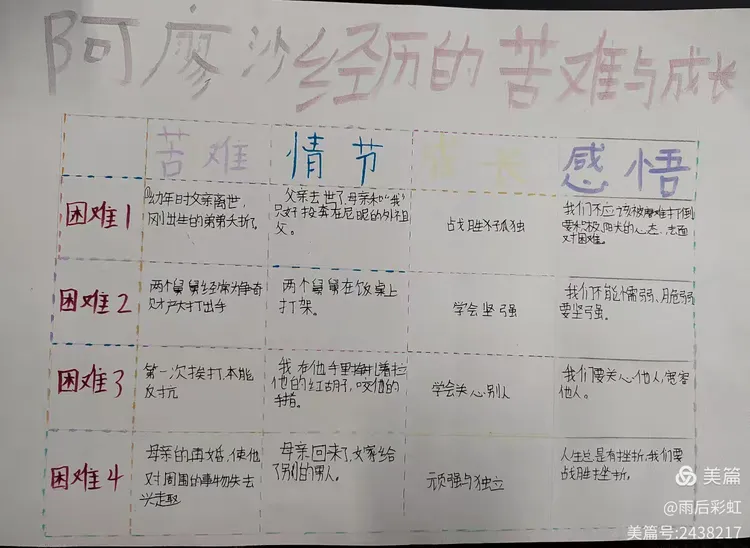 阿廖沙经历的苦难与成长
苦难 情节 成长 感悟
困难1
幼年时父亲离世,
刚出生的弟弟夭折。
父亲去世了,母亲和“我”
只好投奔尼尼的外祖
父。
战胜孤独
我们不应该被难打倒
要积极、阳大的心态、去面
对困难。
困难2
两个舅舅经常为争夺
财产大打出手
两个舅舅在饭桌上
打架。
学会坚强
我们不能懦弱、脆弱
要坚强。
困难3
第一次挨打,本能
反抗
我在他手里挣扎着拉
他的红胡子,咬他的
手指。
学会关心别人
我们要关心他人,宽容
他人。
困难4
母亲的再婚,使他
对周围的事物失去
兴趣
母亲回来了,又嫁给
了别的男人。
顽强与独立
人生总是有挫折,我们要
战胜挫折。
美篇
@雨后彩虹
美篇号:2438217